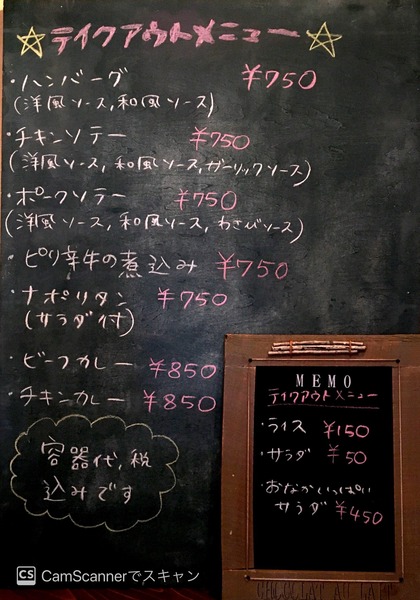 ☆テイクアウトメニュー☆
・ハンバーグ ¥750
(洋風ソース,和風ソース)
・チキンソテー ¥750
(洋風ソース,和風ソース,ガーリックソース)
・ポークソテー ¥750
(洋風ソース,和風ソース,わさびソース)
・ピリ辛牛の煮込み ¥750
・ナポリタン ¥750
(サラダ付)
・ビーフカレー ¥850
・チキンカレー ¥850
容器代,税
込みです
MEMO
テイクアウトメニュー
・ライス ¥150
・サラダ ¥50
・おなかいっぱい
サラダ ¥450
CHOCOLAT AU LAIT
CS CamScannerでスキャン